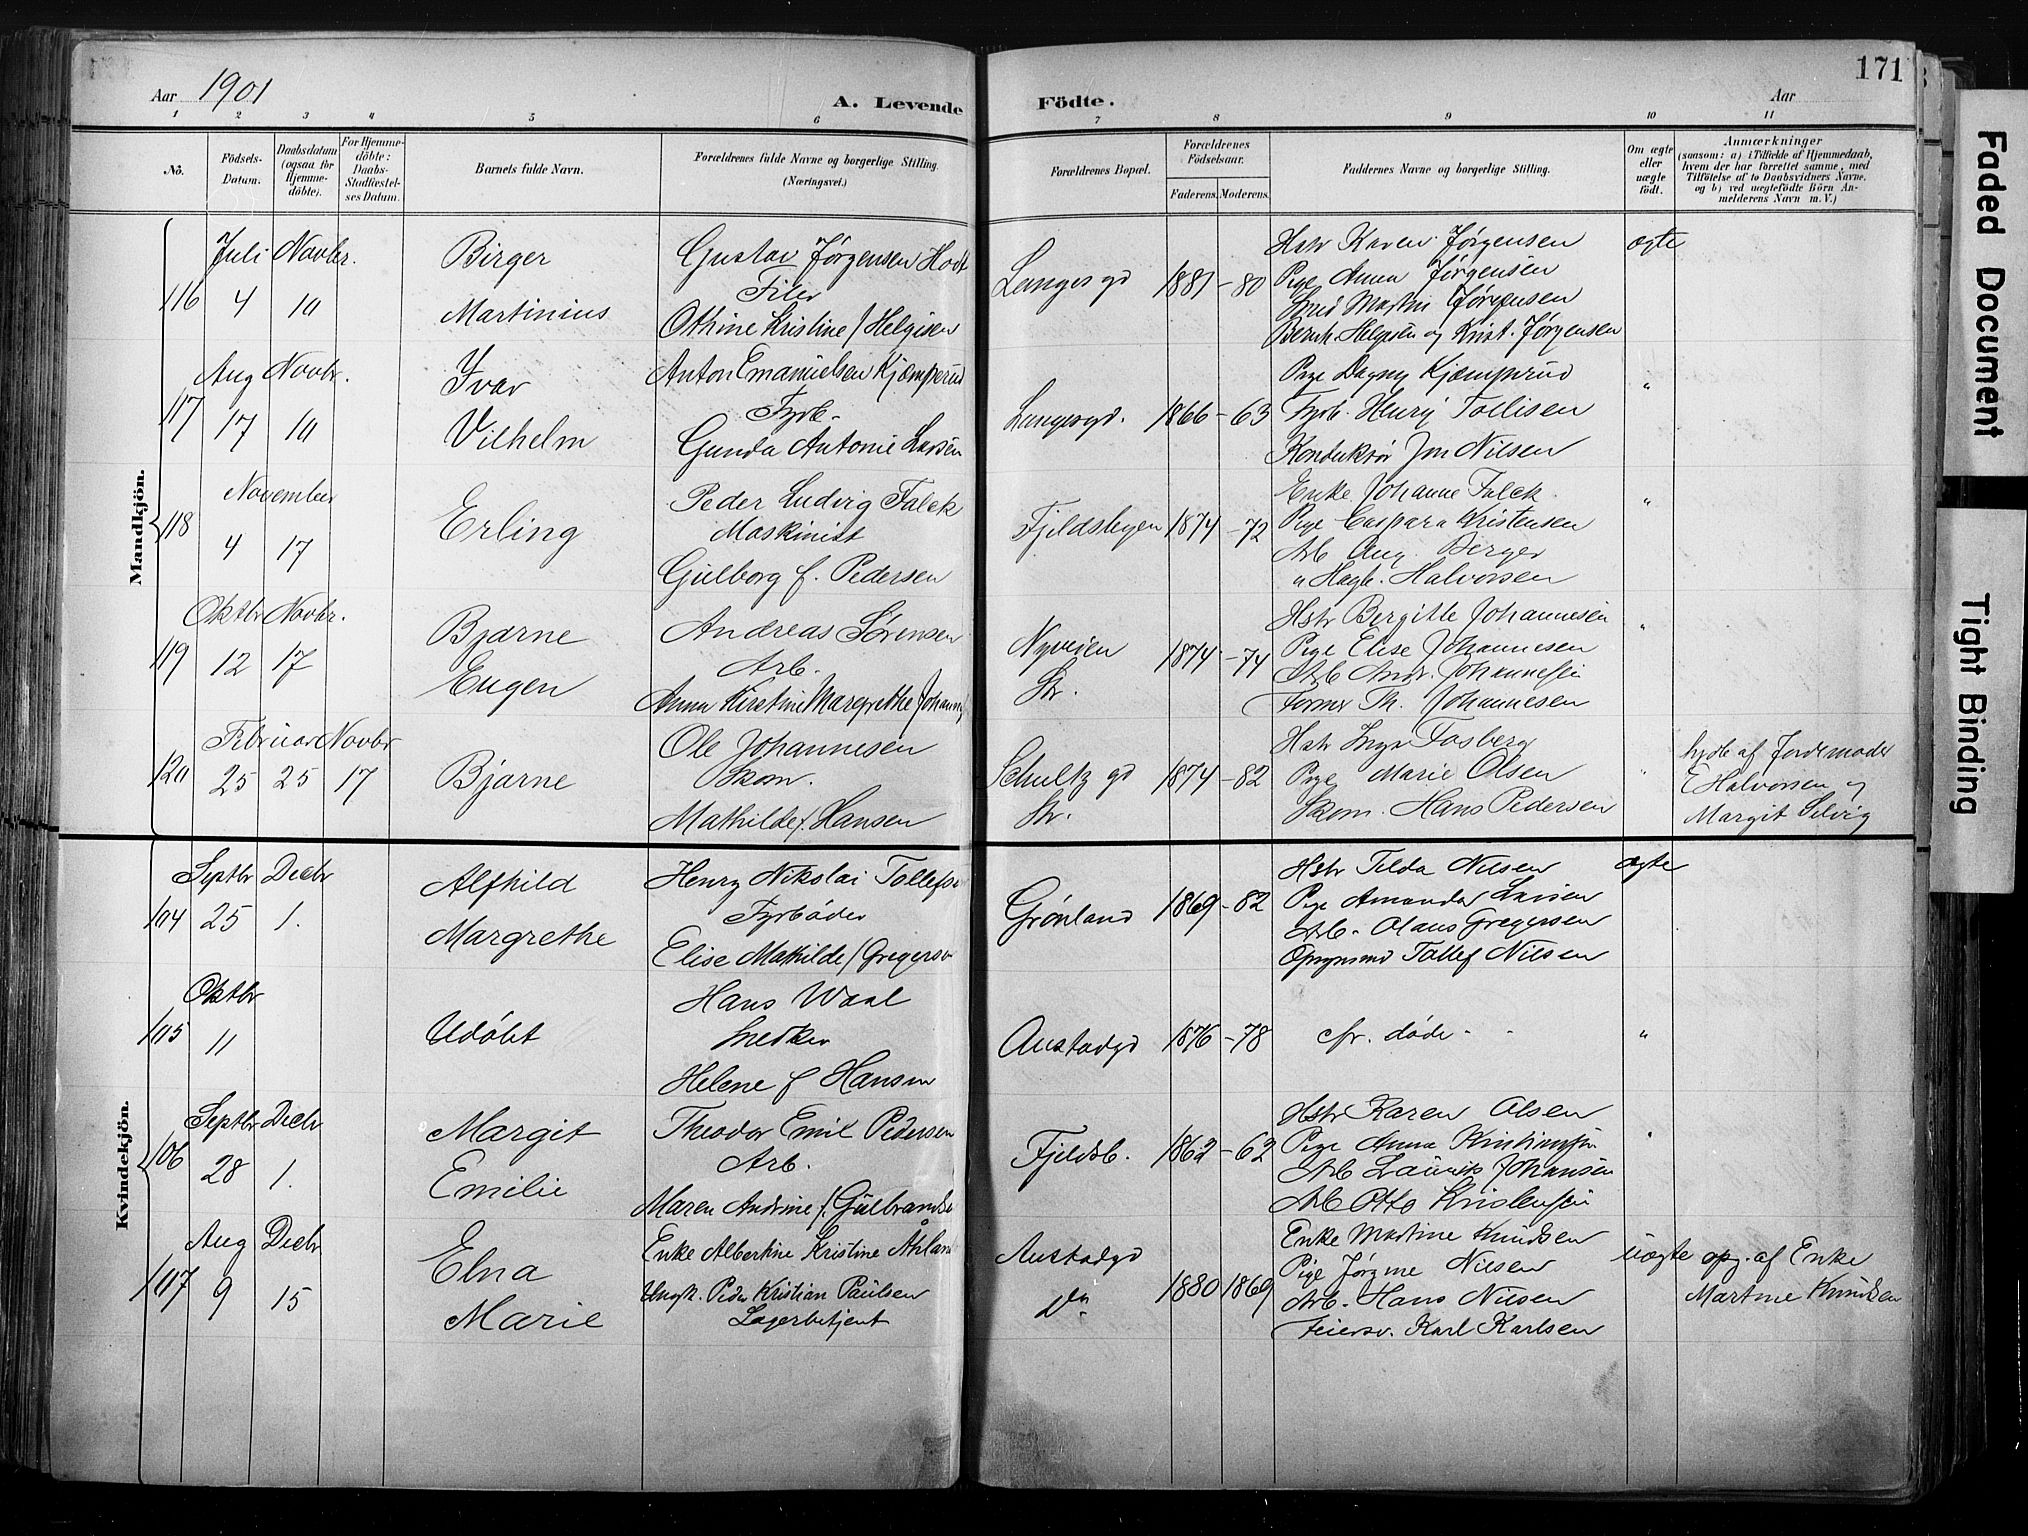 Aar 1901
A. Levende Födte.
Aar
171
1 2 3 4 5 6 7 8 9 10 11
No.
Födsels-Datum.
Daabsdatum (ogsaa for Hjemmedöbte).
For Hjemmedöbte: Daabs-Stadfæstelses Datum.
Barnets fulde Navn.
Forældrenes fulde Navne og borgerlige Stilling.
(Næringsvei.)
Forældrenes Bopæl.
Forældrenes Födselsaar.
Faderens. Moderens.
Faddernes Navne og borgerlige Stilling.
Om ægte eller uægte födt.
Anmærkninger
(saasom: a) i Tilfælde af Hjemmedaab, hvem der har forrettet samme, med Tilföielse af to Daabsvidners Navne, og b) ved uægtefödte Börn Anmelderens Navn m. V.)
Mandkjön.
116
Juli Novbr.
4 10
Birger
Martinius
Gustav Jørgensen Hodt
Filer
Othine Kristine f. Helgesen
Langesgd
1881 - 80
Hstr Karen Jørgensen
Pige Anna Jørgensen
Smed Martin Jørgensen
Bernh. Helgesen og Krist. Jørgensen
ægte
117
Aug Novbr.
17 10
Ivar
Vilhelm
Anton Emanuelsen Kjæmperud
Fyrb.
Gunda Antonie Larsen
Langesgd.
1866 - 63
Pige Dagny Kjæmprud
Fyrb. Henry Tollisen
Konduktør Jon Nilsen
"
118
November
4 17
Erling
Peder Ludvig Falck
Maskinist
Gulborg f. Pedersen
Fjeldsbyen
1874 - 72
Enke Johanne Falck
Pige Caspara Kristensen
Arb Aug. Berger
" Hagb. Halvorsen
"
119
Oktbr Novbr.
12 17
Bjarne
Eugen
Andreas Sørensen
Arb.
Anna Kirstine Margrethe
Nyveien
Str.
1874 - 74
Hstr Bergitte Johannesen
Pige Elise Johannesen
Arb Andr. Johannesen
Former Th. Johannesen
"
120
Februar Novbr
25 25 17
Bjarne
Ole Johannesen
Skom.
Mathilde f. Hansen
Schultz gd
Str.
1874 - 82
Hstr Inga Fosberg
Pige Marie Olsen
Skom. Hans Pedersen
"
hjdb af Jordemoder
E Halvorsen og
Margit Selvig
Kvindekjön.
104
Septbr Decbr
25 1.
Alfhild
Margrethe
Henry Nikolai Tollefsen
Fyrbøder
Elise Mathilde f. Gregersen
Grønland
1869 - 82
Hstr Tilda Nilsen
Pige Amanda Larsen
Arb. Olaus Gregersen
Opsynsmd Tollef Nilsen
ægte
105
Oktbr
11
Udøbt
Hans Waal
Snedker
Helene f Hansen
Austadgd
1876 - 78
cfr. døde
"
106
Septbr Decbr
28 1.
Margit
Emilie
Theodor Emil Pedersen
Arb.
Maren Andrine f. Gulbrandsen
Fjeldsb.
1862 - 62
Hstr Karen Olsen
Pige Anna Kristiansen
Arb Laurits Johansen
Arb Otto Kristensen
"
107
Aug Decbr
9 15
Elna
Marie
Enke Albertine Kristine Åhland
Ungk. Peder Kristian Paulsen
Lagerbetjent
Austadgd
Do
1880 1869
Enke Martine Knudsen
Pige Jørgine Nilsen
Arb. Hans Nilsen
Feiersv. Karl Karlsen
uægte
opg. af Enke
Martine Knudsen
Faded Document
Tight Binding